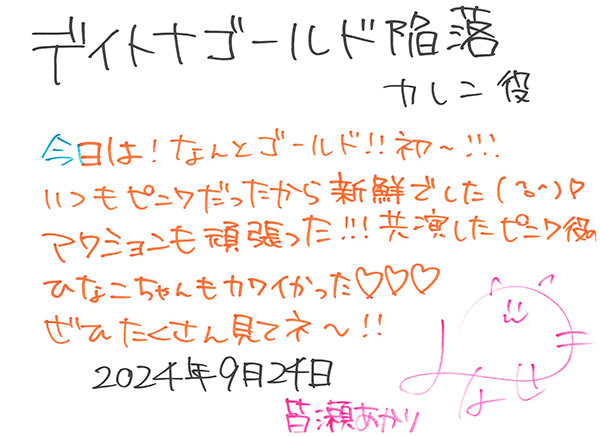 デイトナゴールド陥落
カレン役
今日は！なんとゴールド！！初～！！！
いつもピンクだったから新鮮でした(る～)♡
アクションも頑張った！！！共演したピンク役の
ひなこちゃんもカワイかった♡♡♡
ぜひたくさん見てネ～！！
2024年9月24日
皆瀬あかり